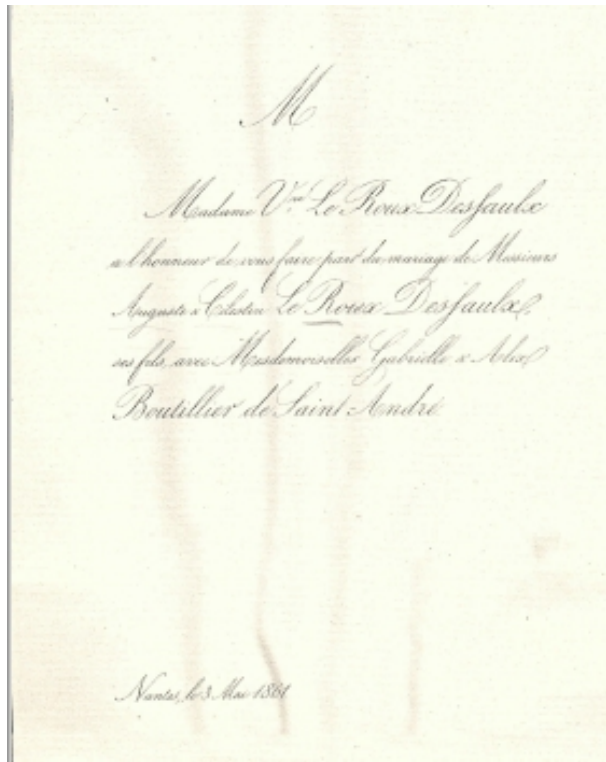 M
Madame Vve Le Roux Desfaulx
a l'honneur de vous faire part du mariage de Messieurs
Auguste & Célestin Le Roux Desfaulx,
ses fils, avec Mesdemoiselles Gabrielle & Alix
Boutillier de Saint-André.
Nantes, le 3 Mai 1861